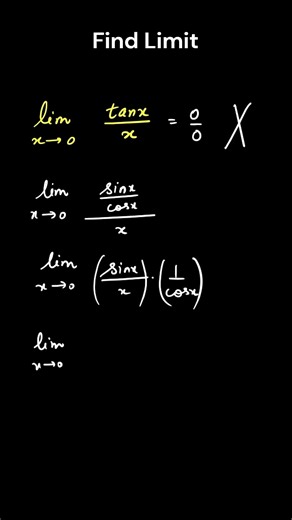 Find Limit
lim x→0 tanx/x = 0/0 X
lim x→0 (sinx/cosx)/x
lim x→0 (sinx/x)·(1/cosx)
lim x→0